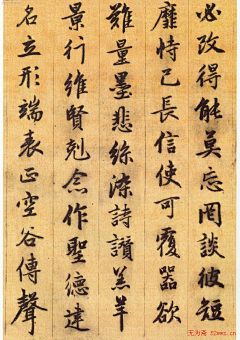 必改得能莫忘罔談彼短
靡恃己長信使可覆器欲
難量墨悲絲染詩讚羔羊
景行維賢剋念作聖德建
名立形端表正空谷傳聲
无为斋